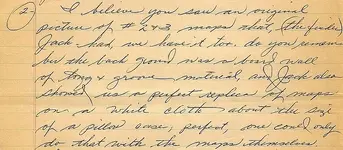 (2) I believe you saw an original
picture of # 2+3 maps that, (the finder
Jack had, we have it too. do you remem
ber the back ground was a board wall
of tong & groove material, and Jack also
showed us a perfect replica of maps
on a white cloth about the size
of a pillow case, perfect, one could only
do that with the maps themselves.